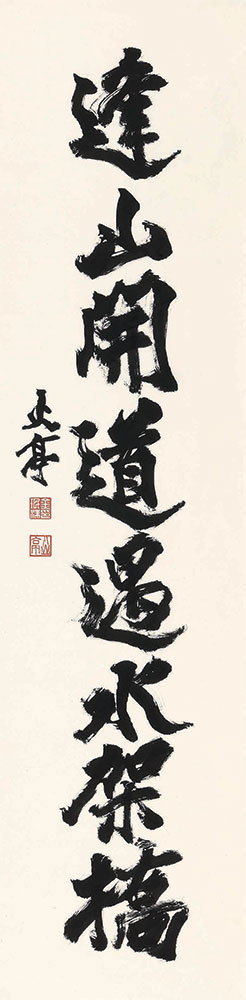 逢山開道遇水架橋
大亭